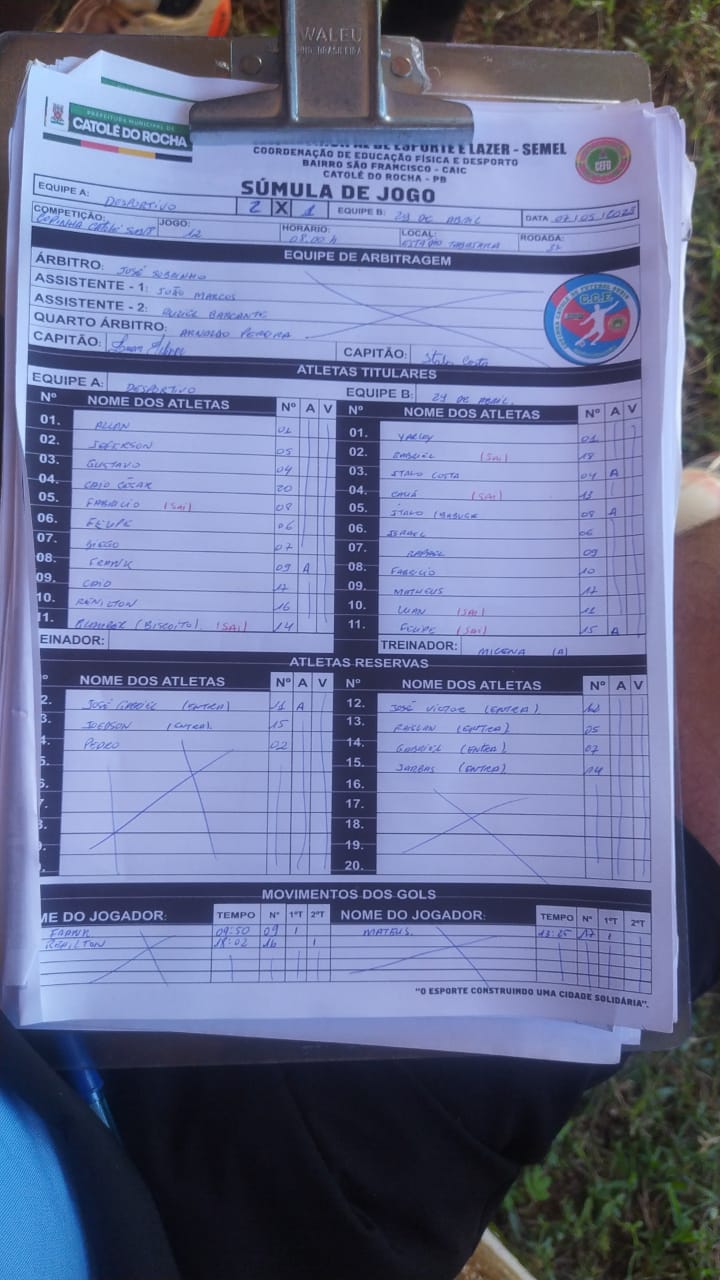 WALEU
IND. BRASILEIRA
PREFEITURA MUNICIPAL DE
CATOLÉ DO ROCHA
DE ESPORTE E LAZER - SEMEL
COORDENAÇÃO DE EDUCAÇÃO FÍSICA E DESPORTO
BAIRRO SÃO FRANCISCO - CAIC
CATOLÉ DO ROCHA - PB
SÚMULA DE JOGO
EQUIPE A: DESPORTIVO 2 X 1 EQUIPE B: 29 DE ABRIL DATA 07/05/2025
COMPETIÇÃO: COPINHA CATOLÉ JOGO: 12 HORÁRIO: 08:00 h LOCAL: ESTÁDIO RODADA:
EQUIPE DE ARBITRAGEM
ÁRBITRO: JOSÉ SOBRINHO
ASSISTENTE - 1: JOÃO MARCOS
ASSISTENTE - 2:
QUARTO ÁRBITRO: ARNALDO PEREIRA
CAPITÃO: CAPITÃO: Italo Costa
C.C.E.
ATLETAS TITULARES
EQUIPE A: DESPORTIVO EQUIPE B: 29 DE ABRIL.
Nº NOME DOS ATLETAS Nº A V Nº NOME DOS ATLETAS Nº A V
01. ALLAN 01 01. YARLEY 01
02. JEFERSON 05 02. GABRIEL (SAI) 18
03. GUSTAVO 04 03. ITALO COSTA 04 A
04. CAIO CÉSAR 20 04. CAUÃ (SAI) 13
05. FABRICIO (SAI) 08 05. ITALO 08 A
06. FELIPE 06 06. ISRAEL 06
07. DIEGO 07 07. RAFAEL 09
08. FRANK 09 A 08. FABRICIO 10
09. CAIO 17 09. MATHEUS 17
10. RENILTON 16 10. LUAN (SAI) 11
11. (BISCOITO). (SAI) 14 11. FELIPE (SAI) 15 A
EINADOR: TREINADOR: MICENA (A)
ATLETAS RESERVAS
º NOME DOS ATLETAS Nº A V Nº NOME DOS ATLETAS Nº A V
2. JOSÉ GABRIEL (ENTRA) 11 A 12. JOSÉ VICTOR (ENTRA) 12
3. JOEDSON (ENTRA). 15 13. (ENTRA) 05
4. PEDRO 02 14. GABRIEL (ENTRA) 07
5. 15. JARBAS (ENTRA) 14
6. 16.
7. 17.
8. 18.
9. 19.
20.
MOVIMENTOS DOS GOLS
ME DO JOGADOR: TEMPO Nº 1ºT 2ºT NOME DO JOGADOR: TEMPO Nº 1ºT 2ºT
FRANK 09:50 09 1 MATEUS. 13:25 17 1
RENILTON 18:02 16 1
"O ESPORTE CONSTRUINDO UMA CIDADE SOLIDÁRIA".